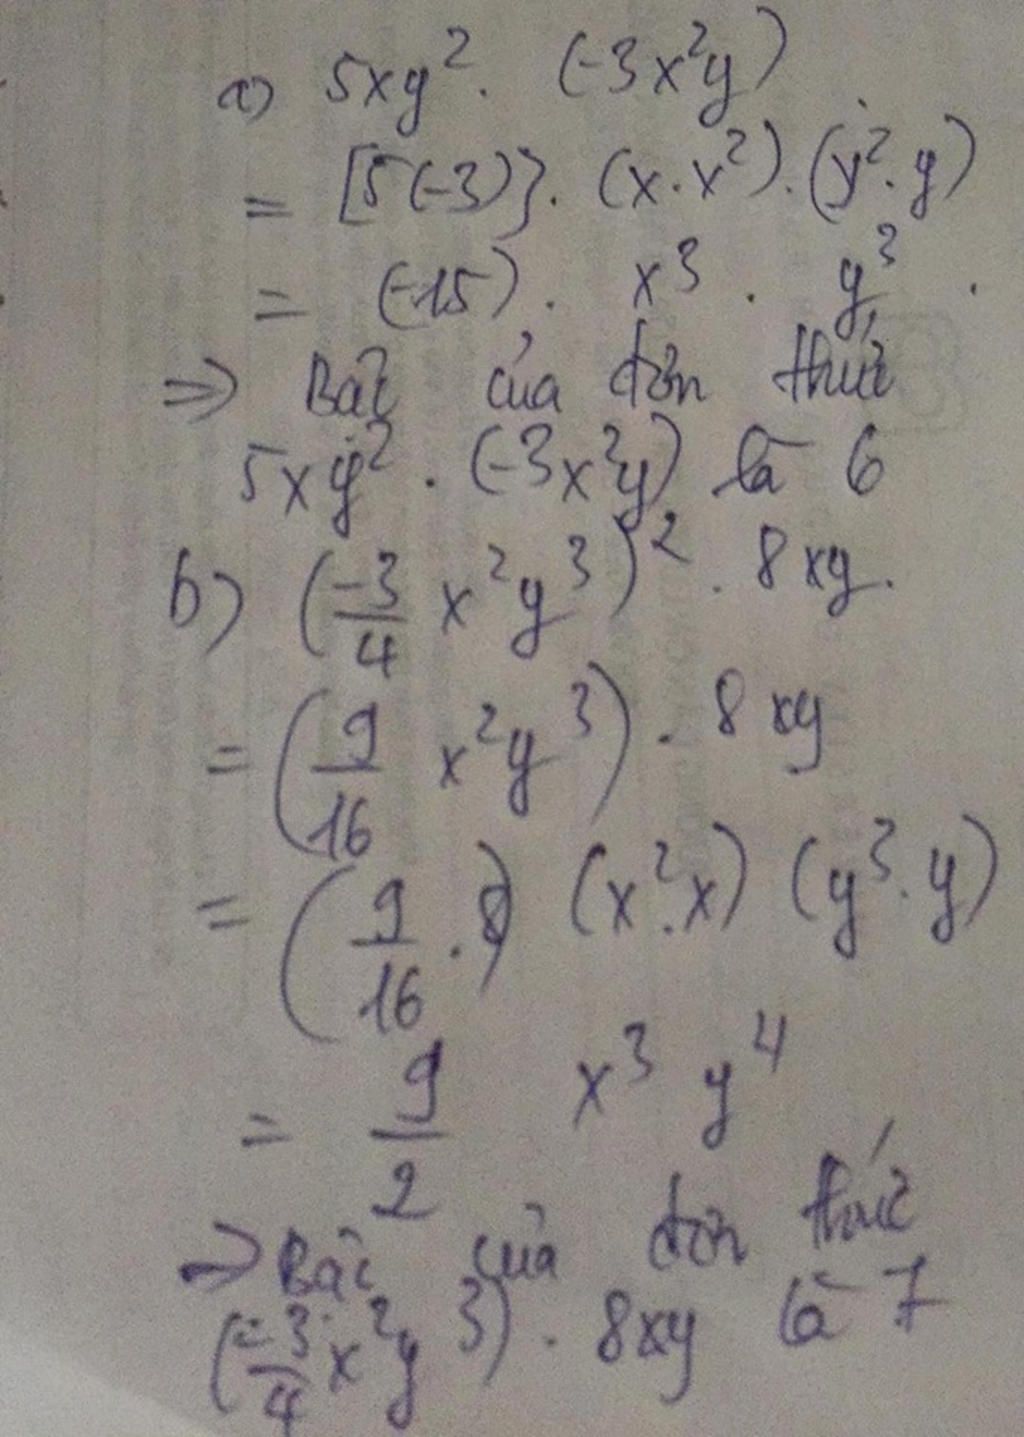 a) 5xy². (-3x²y)
= [5(-3)}. (x.x²).(y².y)
= (-15). x³. y³.
=> Bậc của đơn thức
5xy². (-3x²y) là 6
b) (-3/4 x²y³)². 8xy.
= (9/16 x²y³). 8xy
= (9/16 .8) (x².x) (y³.y)
= 9/2 x³ y⁴
=> Bậc của đơn thức
(-3/4 x²y³). 8xy là 7